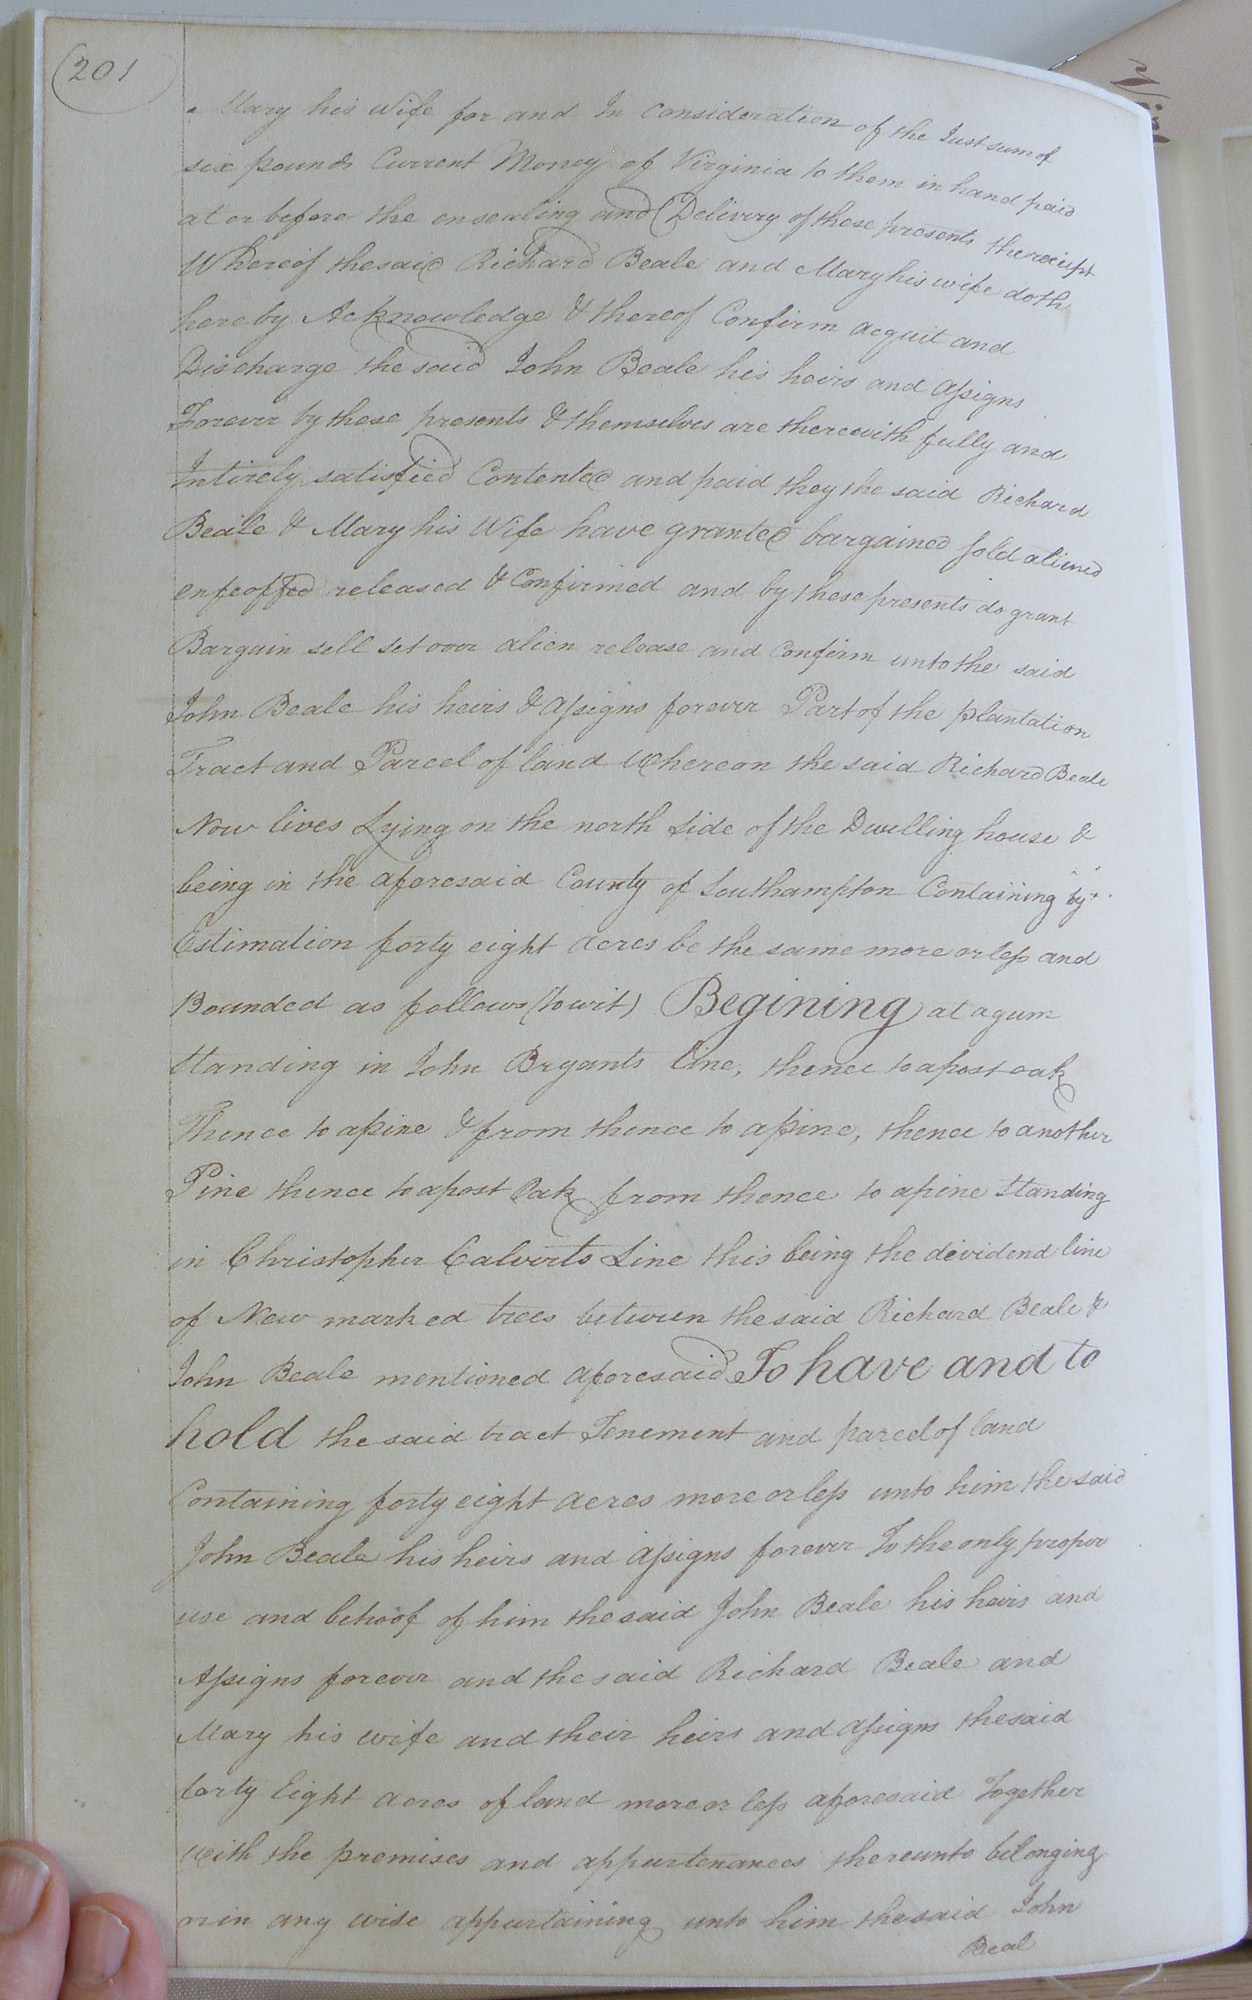 201
Mary his Wife for and In Consideration of the Just sum of
six pounds Current Money of Virginia to them in hand paid
at or before the ensealing and Delivery of these presents the receipt
Whereof the said Richard Beale and Mary his wife doth
hereby Acknowledge & thereof Confirm acquit and
Discharge the said John Beale his heirs and Assigns
Forever by these presents & themselves are therewith fully and
Intirely satisfied Contented and paid they the said Richard
Beale & Mary his Wife have granted bargained sold aliened
enfeoffed released & Confirmed and by these presents do grant
Bargain sell set over alien release and confirm unto the said
John Beale his heirs & Assigns forever Part of the plantation
Tract and Parcel of land Whereon the said Richard Beale
Now lives Lying on the north Side of the Dwelling house &
being in the aforesaid County of Southampton Containing by
Estimation forty eight acres be the same more or less and
Bounded as follows (to wit) Begining at a gum
Standing in John Bryants line, thence to a post oak
Thence to a pine & from thence to a pine, thence to another
Pine thence to a post Oak from thence to a pine Standing
in Christopher Calverts Line this being the devidend line
of New marked trees between the said Richard Beale &
John Beale mentioned aforesaid To have and to
hold the said tract Tenement and parcel of land
Containing forty eight acres more or less unto him the said
John Beale his heirs and assigns forever To the only proper
use and behoof of him the said John Beale his heirs and
Assigns forever and the said Richard Beale and
Mary his wife and their heirs and assigns the said
forty Eight acres of land more or less aforesaid Together
With the premises and appurtenances thereunto belonging
or in any wise appurtaining unto him the said John
Beal